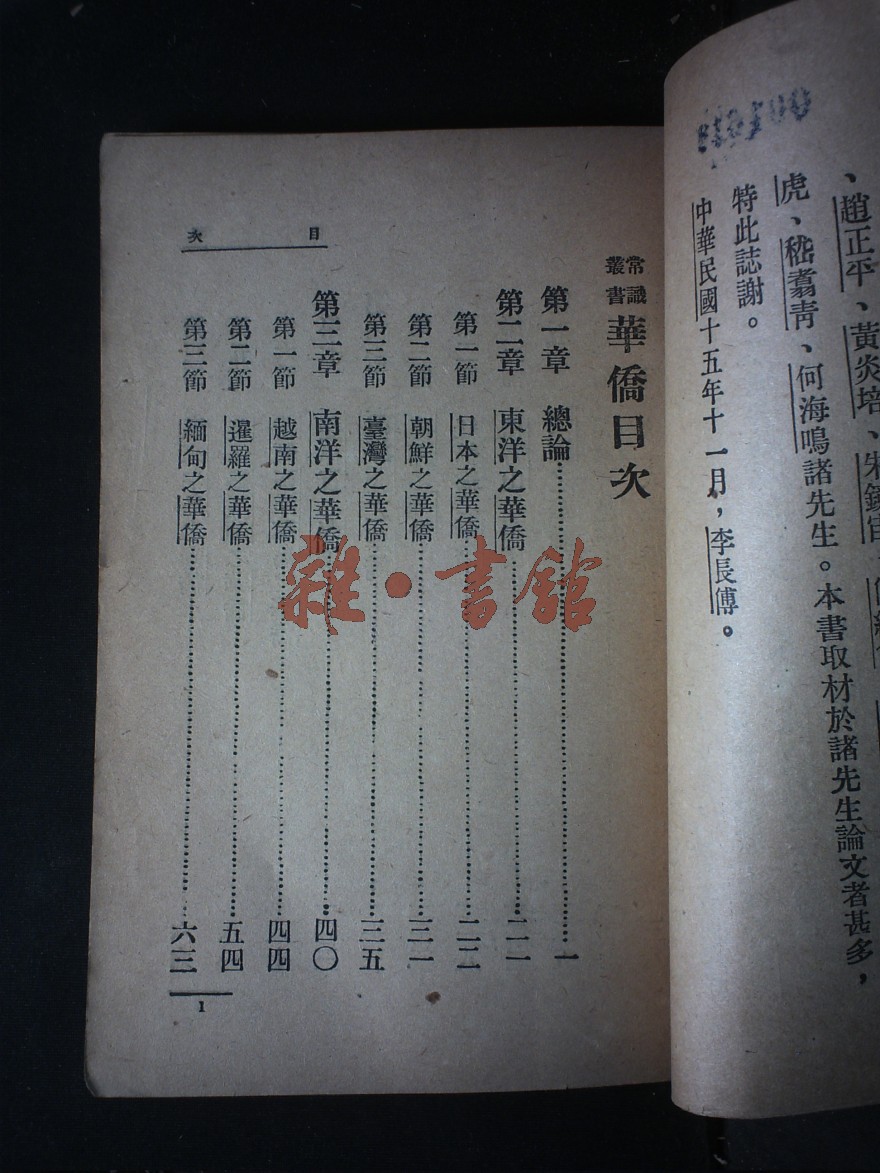 、趙正平、黃炎培、朱鏡宙、
虎、嵇翥青、何海鳴諸先生。本書取材於諸先生論文者甚多，
特此誌謝。
中華民國十五年十一月，李長傅。
目次
常識叢書 華僑目次
第一章 總論……一
第二章 東洋之華僑……二一
第一節 日本之華僑……二二
第二節 朝鮮之華僑……三一
第三節 臺灣之華僑……三五
第三章 南洋之華僑……四〇
第一節 越南之華僑……四四
第二節 暹羅之華僑……五四
第三節 緬甸之華僑……六三
1
雜·書館